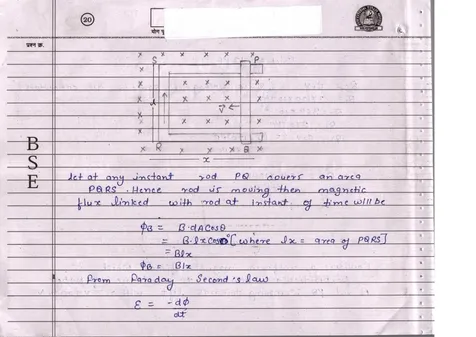 20
प्रश्न क्र.
S P
l
v
R Q
x
B
S
E
let at any instant rod PQ covers an area
PQRS. Hence rod is moving then magnetic
flux linked with rod at instant of time will be
ΦB = B·dA cosθ
= B·lx cos0° [where lx = area of PQRS]
= Blx
ΦB = Blx
From Faraday Second's law
ε = -dΦ
dt